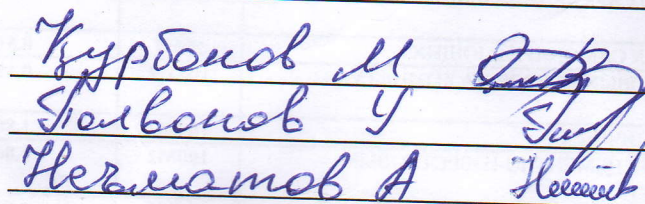 Қурбонов М
Полвонов У
Неъматов А